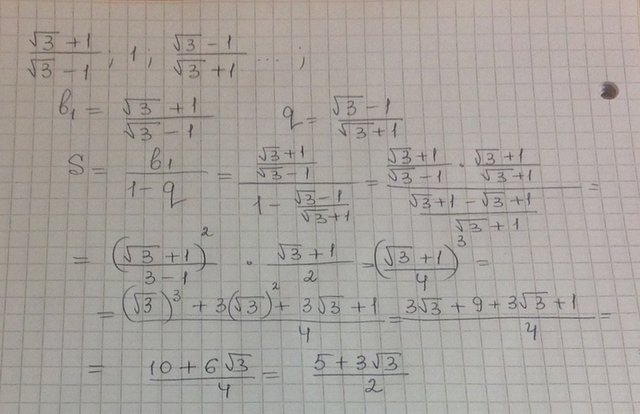 (√3 + 1)/(√3 − 1) ; 1 ; (√3 − 1)/(√3 + 1) ... ;
b₁ = (√3 + 1)/(√3 − 1)   q = (√3 − 1)/(√3 + 1)
S = b₁/(1 − q) = ((√3 + 1)/(√3 − 1))/(1 − (√3 − 1)/(√3 + 1)) = ((√3 + 1)/(√3 − 1) · (√3 + 1)/(√3 + 1))/((√3 + 1 − √3 + 1)/(√3 + 1)) =
= (√3 + 1)²/(3 − 1) · (√3 + 1)/2 = (√3 + 1)³/4 =
= ((√3)³ + 3(√3)² + 3√3 + 1)/4 = (3√3 + 9 + 3√3 + 1)/4 =
= (10 + 6√3)/4 = (5 + 3√3)/2